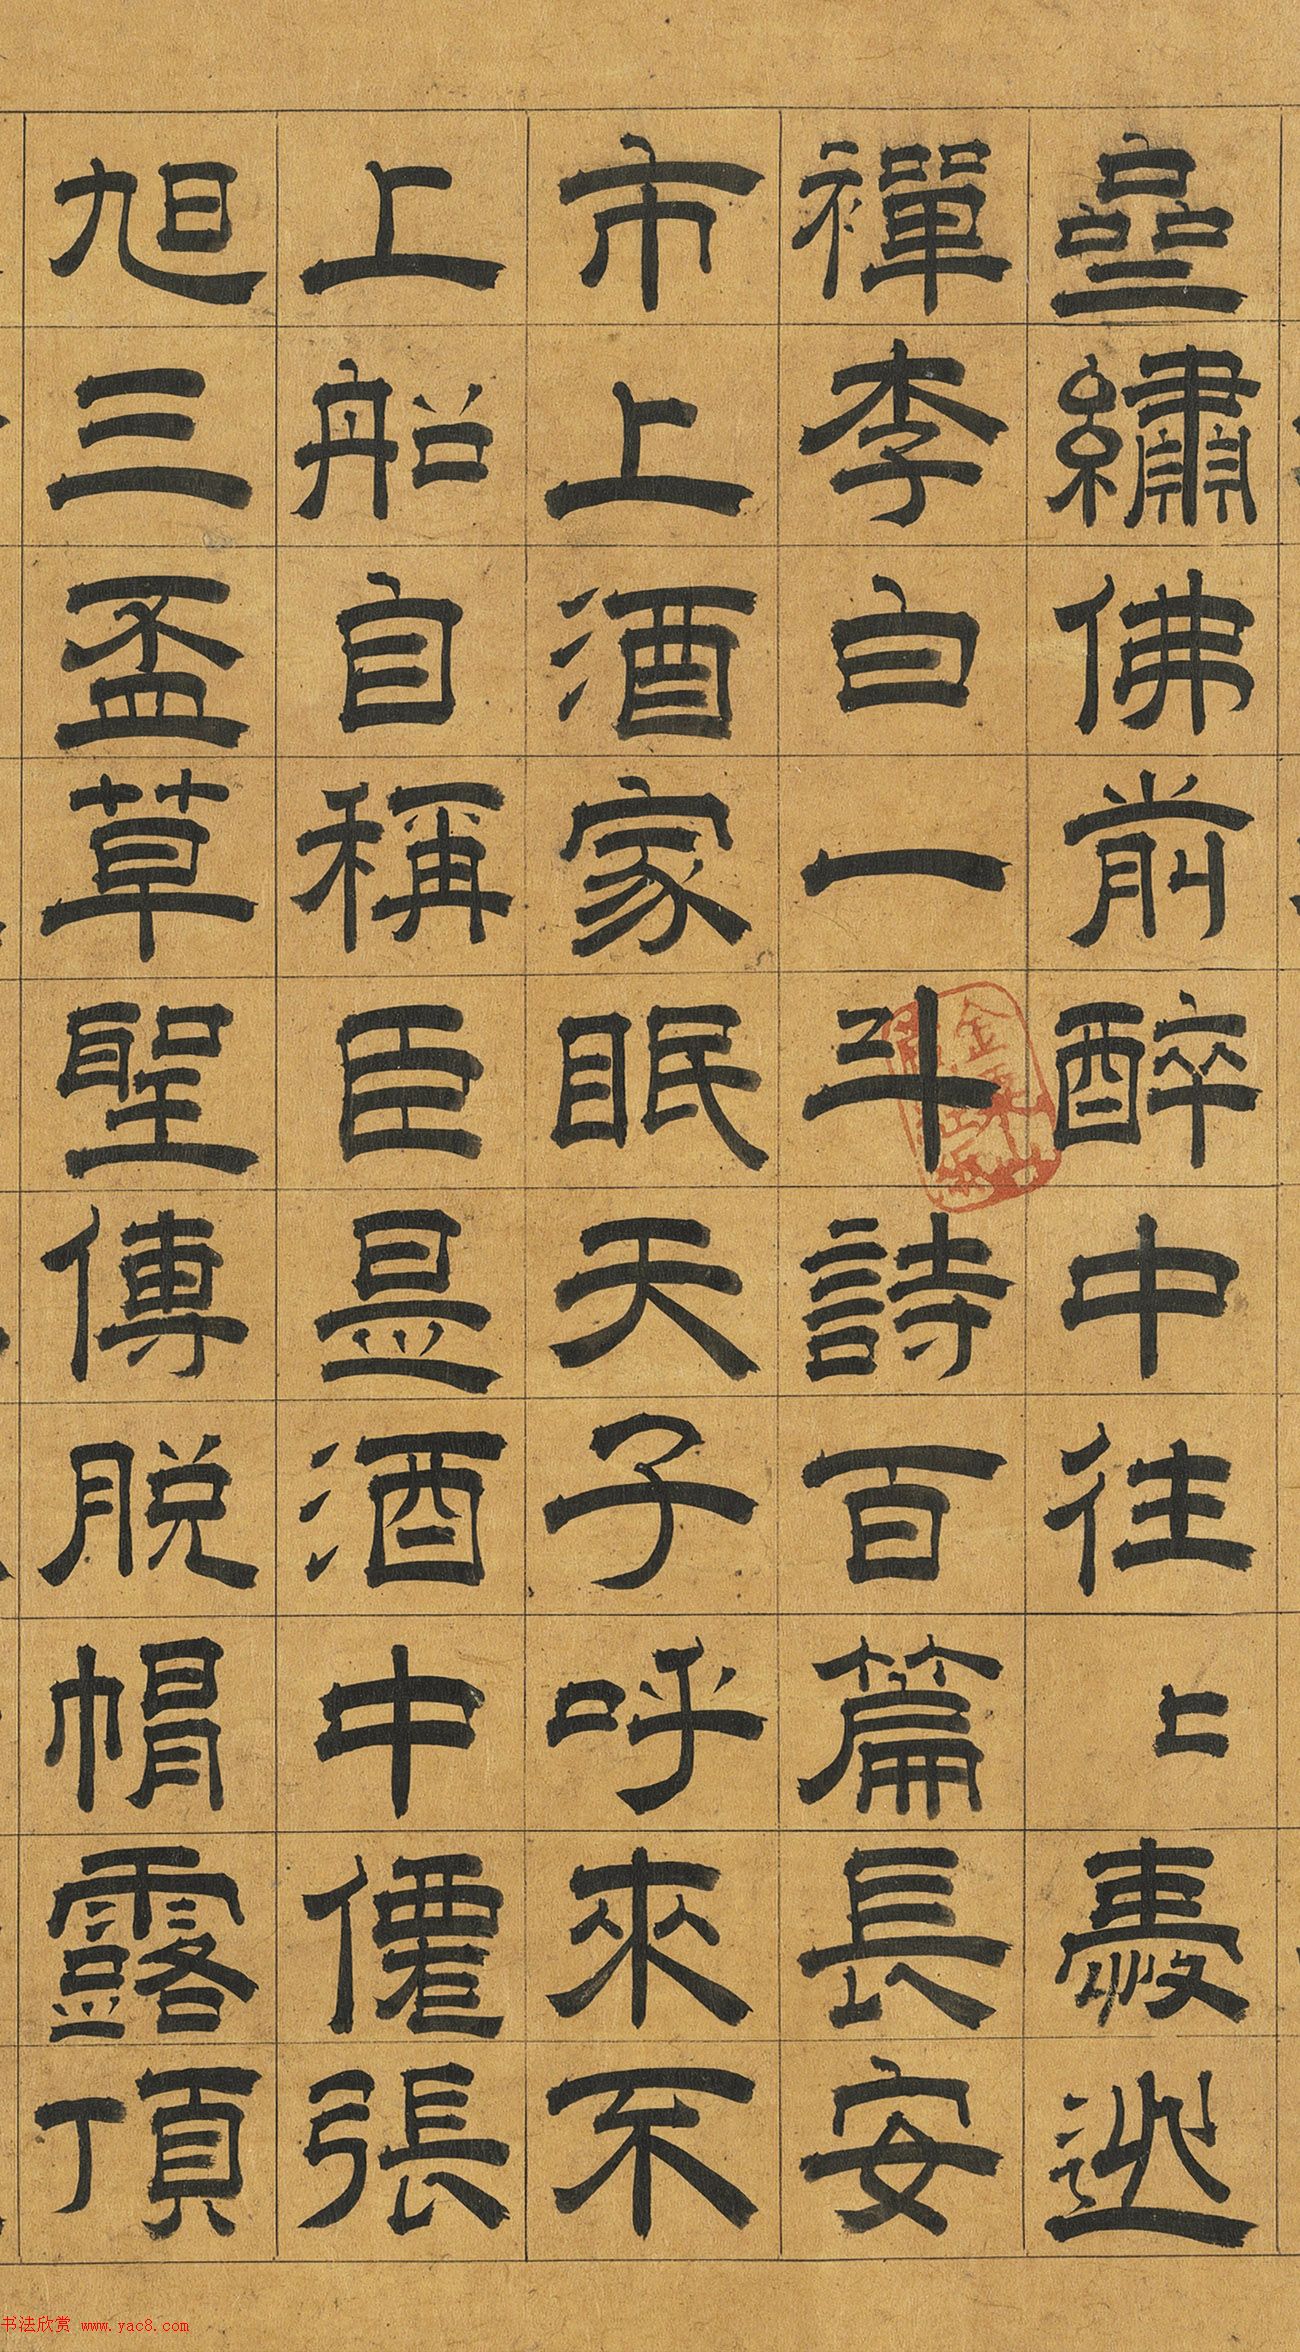 亝繡佛前醉中往〻愛逃
禪李白一斗詩百篇長安
市上酒家眠天子呼來不
上船自稱臣是酒中僊張
旭三盃草聖傳脫帽露頂
金粟山
書法欣賞 www.yac8.com